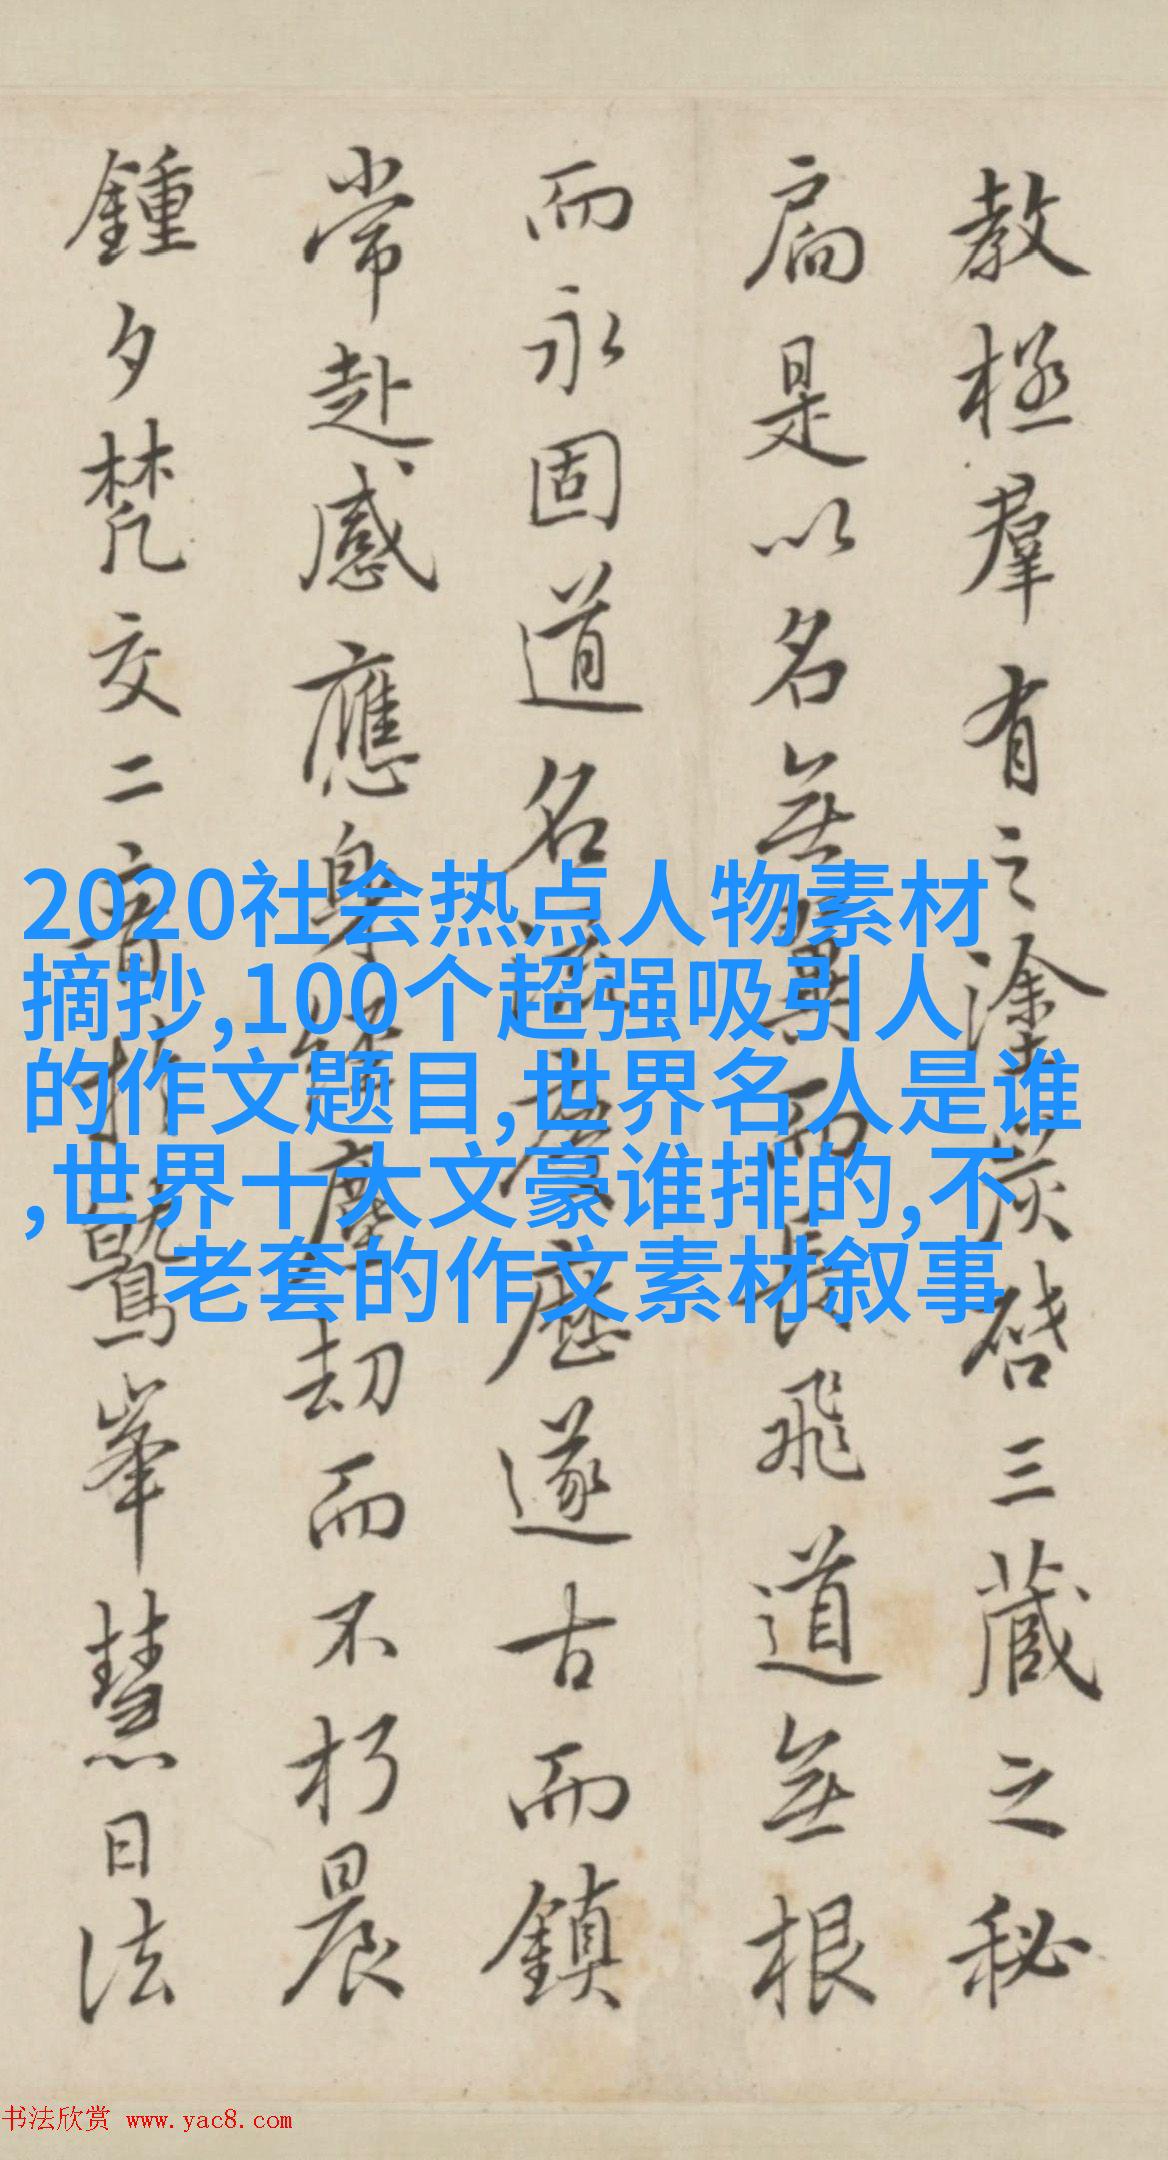 教極羣有之塗炭啓三藏之秘
扃是以名無翼而長飛道無根
而永固道名流慶歷遂古而鎮
常赴感應身經塵劫而不朽晨
鍾夕梵交二音於鷲峯慧日法
2020社会热点人物素材
摘抄,100个超强吸引人
的作文题目,世界名人是谁
,世界十大文豪谁排的,不
老套的作文素材叙事
书法欣赏 www.yac8.com